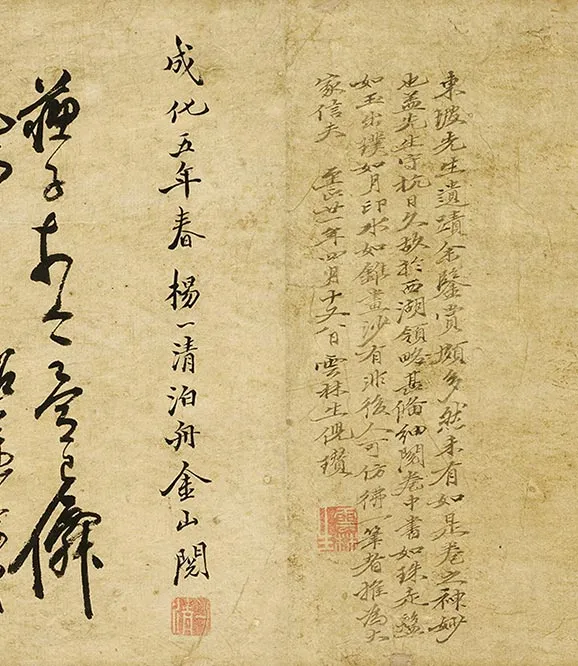 東坡先生遺蹟余鑒賞頗多然未有如是卷之神妙
也蓋先生守杭日久故於西湖領略甚備細閱卷中書如珠走盤
如玉出璞如月印水如錐畫沙有非後人可仿彿一筆者推為大
家信夫 至正廿一年四月十六日雲林生倪瓚
雲林生
成化五年春楊一清泊舟金山閱
蘇子